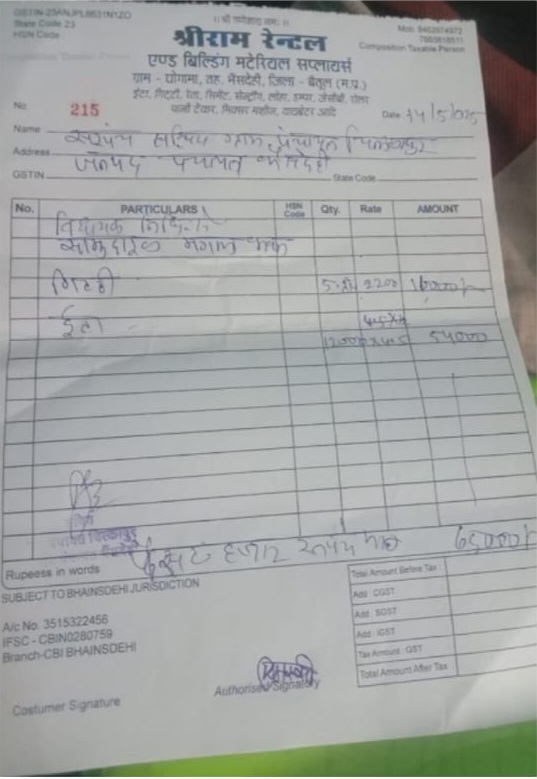 GSTIN-23ANJPL6631N1ZO
State Code 23
HSN Code
।। श्री गणेशाय नमः ।।
Mob. 9402974972
Composition Taxable Person
श्रीराम रेन्टल
एण्ड बिल्डिंग मटेरियल सप्लायर्स
ग्राम - धोगामा, तह. भैंसदेही, जिला - बैतूल (म.प्र.)
ईंटा, गिट्टी, रेता, सिमेंट, सेन्ट्रींग, लोहा, डम्पर, जेसीबी, रोलर
पानी टेंकर, मिक्सर मशीन, वायब्रेटर आदि
No. 215
Date 14/5/025
Name सरपंच सचिव ग्राम पंचायत
Address जनपद पंचायत भैंसदेही
GSTIN
State Code
No. PARTICULARS HSN Code Qty. Rate AMOUNT
विधायक निधि
सामुदायिक भवन
गिट्टी 2200
ईटा
12000 x 4.5 54000
हजार रूपये मात्र 65000/-
Rupeess in words
SUBJECT TO BHAINSDEHI JURISDICTION
A/c No. 3515322456
IFSC - CBIN0280759
Branch-CBI BHAINSDEHI
Total Amount Before Tax
Add : CGST
Add : SGST
Add : IGST
Tax Amount : GST
Total Amount After Tax
Authorised Signatory
Costumer Signature